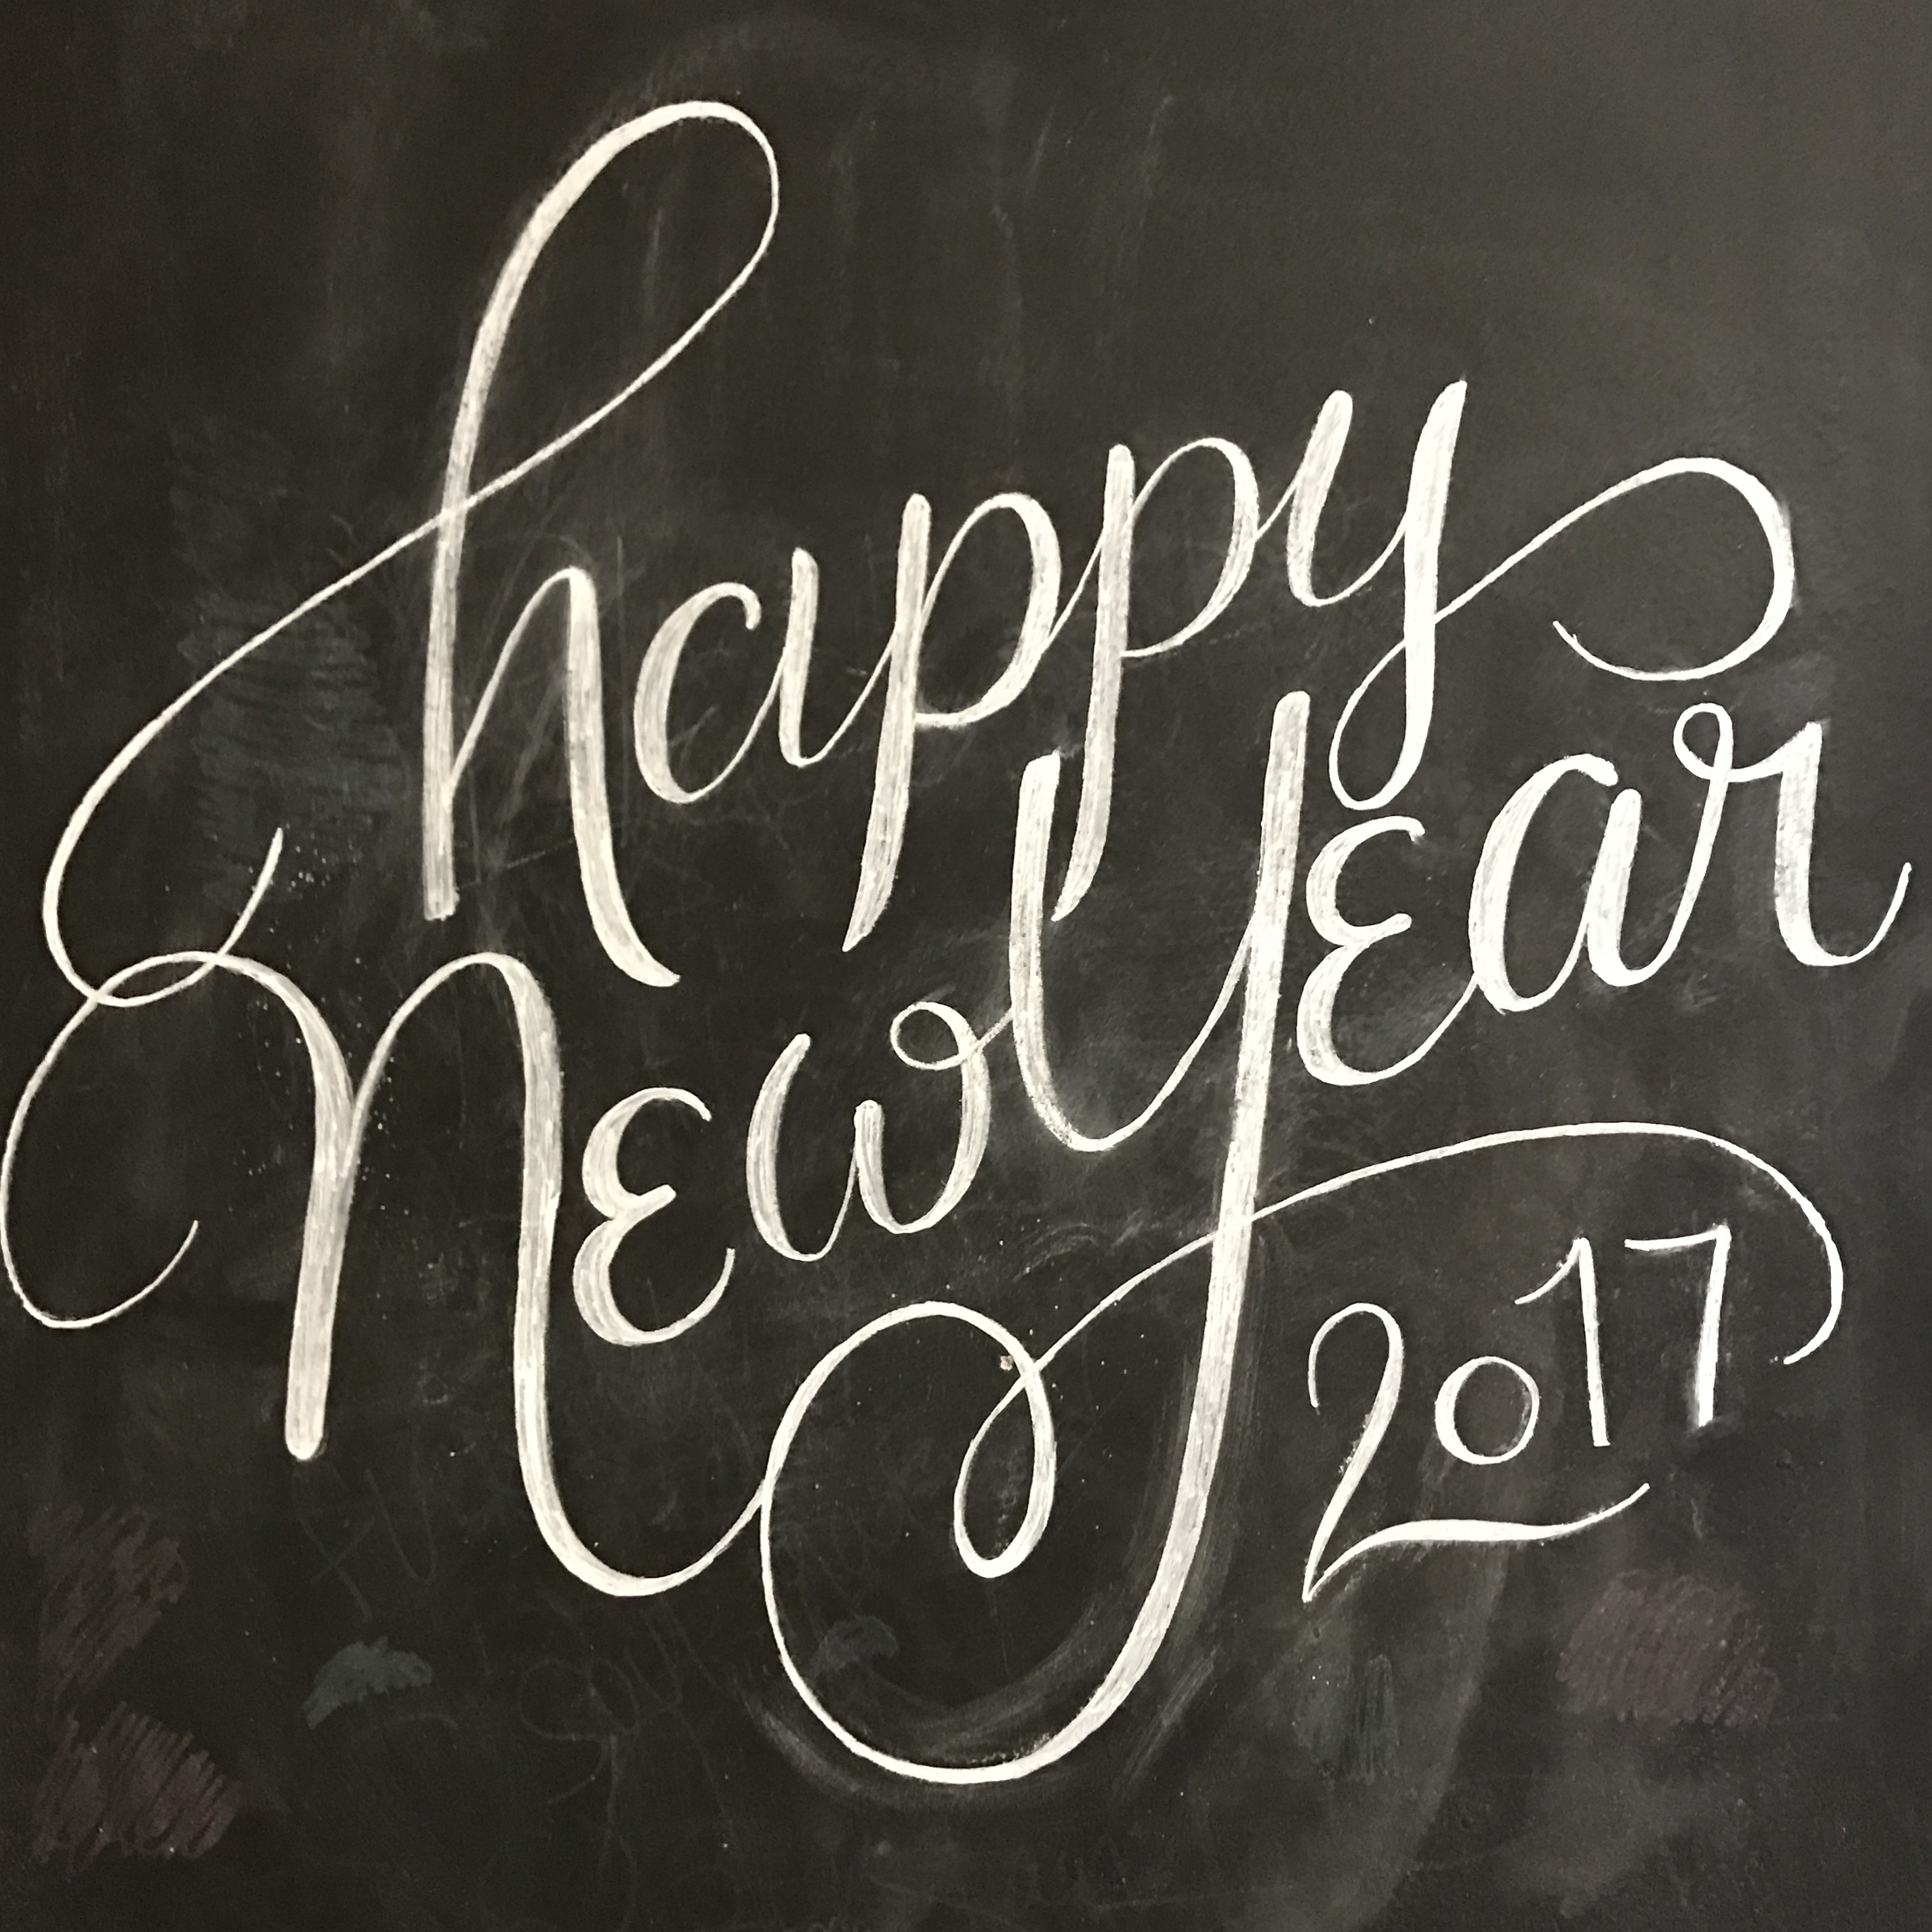 happy
New Year
2017